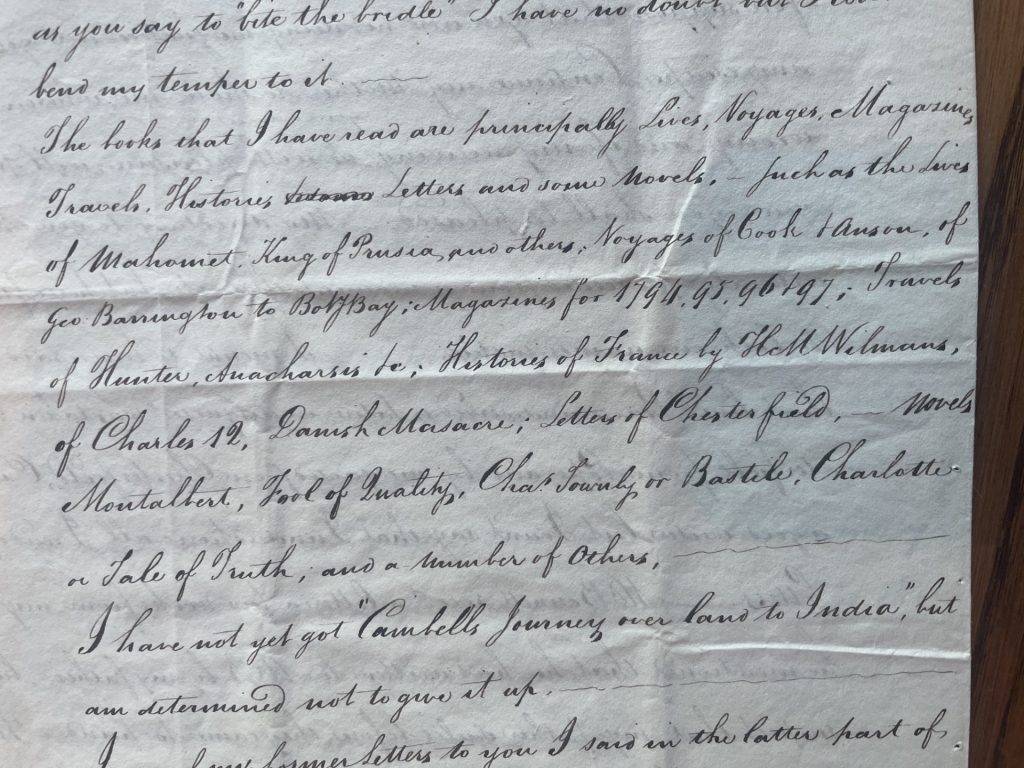 as you say to "bite the bridle" I have no doubt but I
bend my temper to it.
The books that I have read are principally Lives, Voyages, Magazines
Travels, Histories Letters and some Novels, – Such as the Lives
of Mahomet, King of Prusia, and others; Voyages of Cook & Anson, of
Geo Barrington to Boty Bay; Magazines for 1794, 95, 96 & 97; Travels
of Hunter, Anacharsis &c; Histories of France by H M Wilmans,
of Charles 12, Danish Masacre; Letters of Chesterfield, — Novels
Montalbert, Fool of Quality, Chas Townly or Bastile, Charlotte
or Tale of Truth, and a number of Others,
I have not yet got "Cambells Journey over land to India", but
am determined not to give it up.
former Letters to you I said in the latter part of